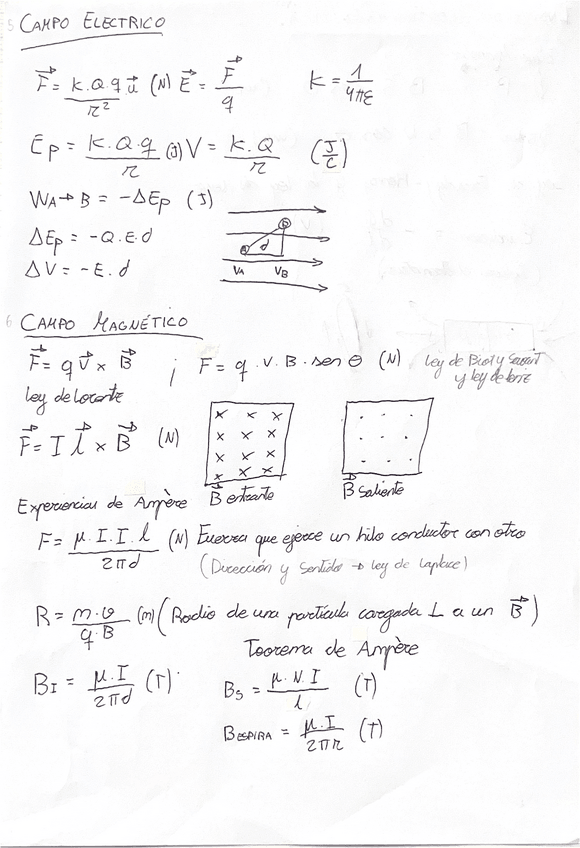 5 CAMPO ELECTRICO
F⃗ = K.Q.q/r² u⃗ (N) E⃗ = F⃗/q K = 1/4πε
Ep = K.Q.q/r (J) V = K.Q/r (J/C)
WA→B = -ΔEp (J)
ΔEp = -Q.E.d
ΔV = -E.d
A B d
VA VB
6 CAMPO MAGNÉTICO
F⃗ = q V⃗ x B⃗ ; F = q.V.B.sen θ (N) Ley de Biot y Savart
y ley de
Ley de Lorentz
F⃗ = I l⃗ x B⃗ (N)
B⃗ entrante B⃗ saliente
Experiencias de Ampère
F = μ.I.I.l/2πd (N) Fuerza que ejerce un hilo conductor con otro
(Dirección y Sentido → Ley de Laplace)
R = m.v/q.B (m) (Radio de una partícula cargada ⊥ a un B⃗)
Teorema de Ampère
BI = μ.I/2πd (T) BS = μ.N.I/l (T)
BESPIRA = μ.I/2πr (T)